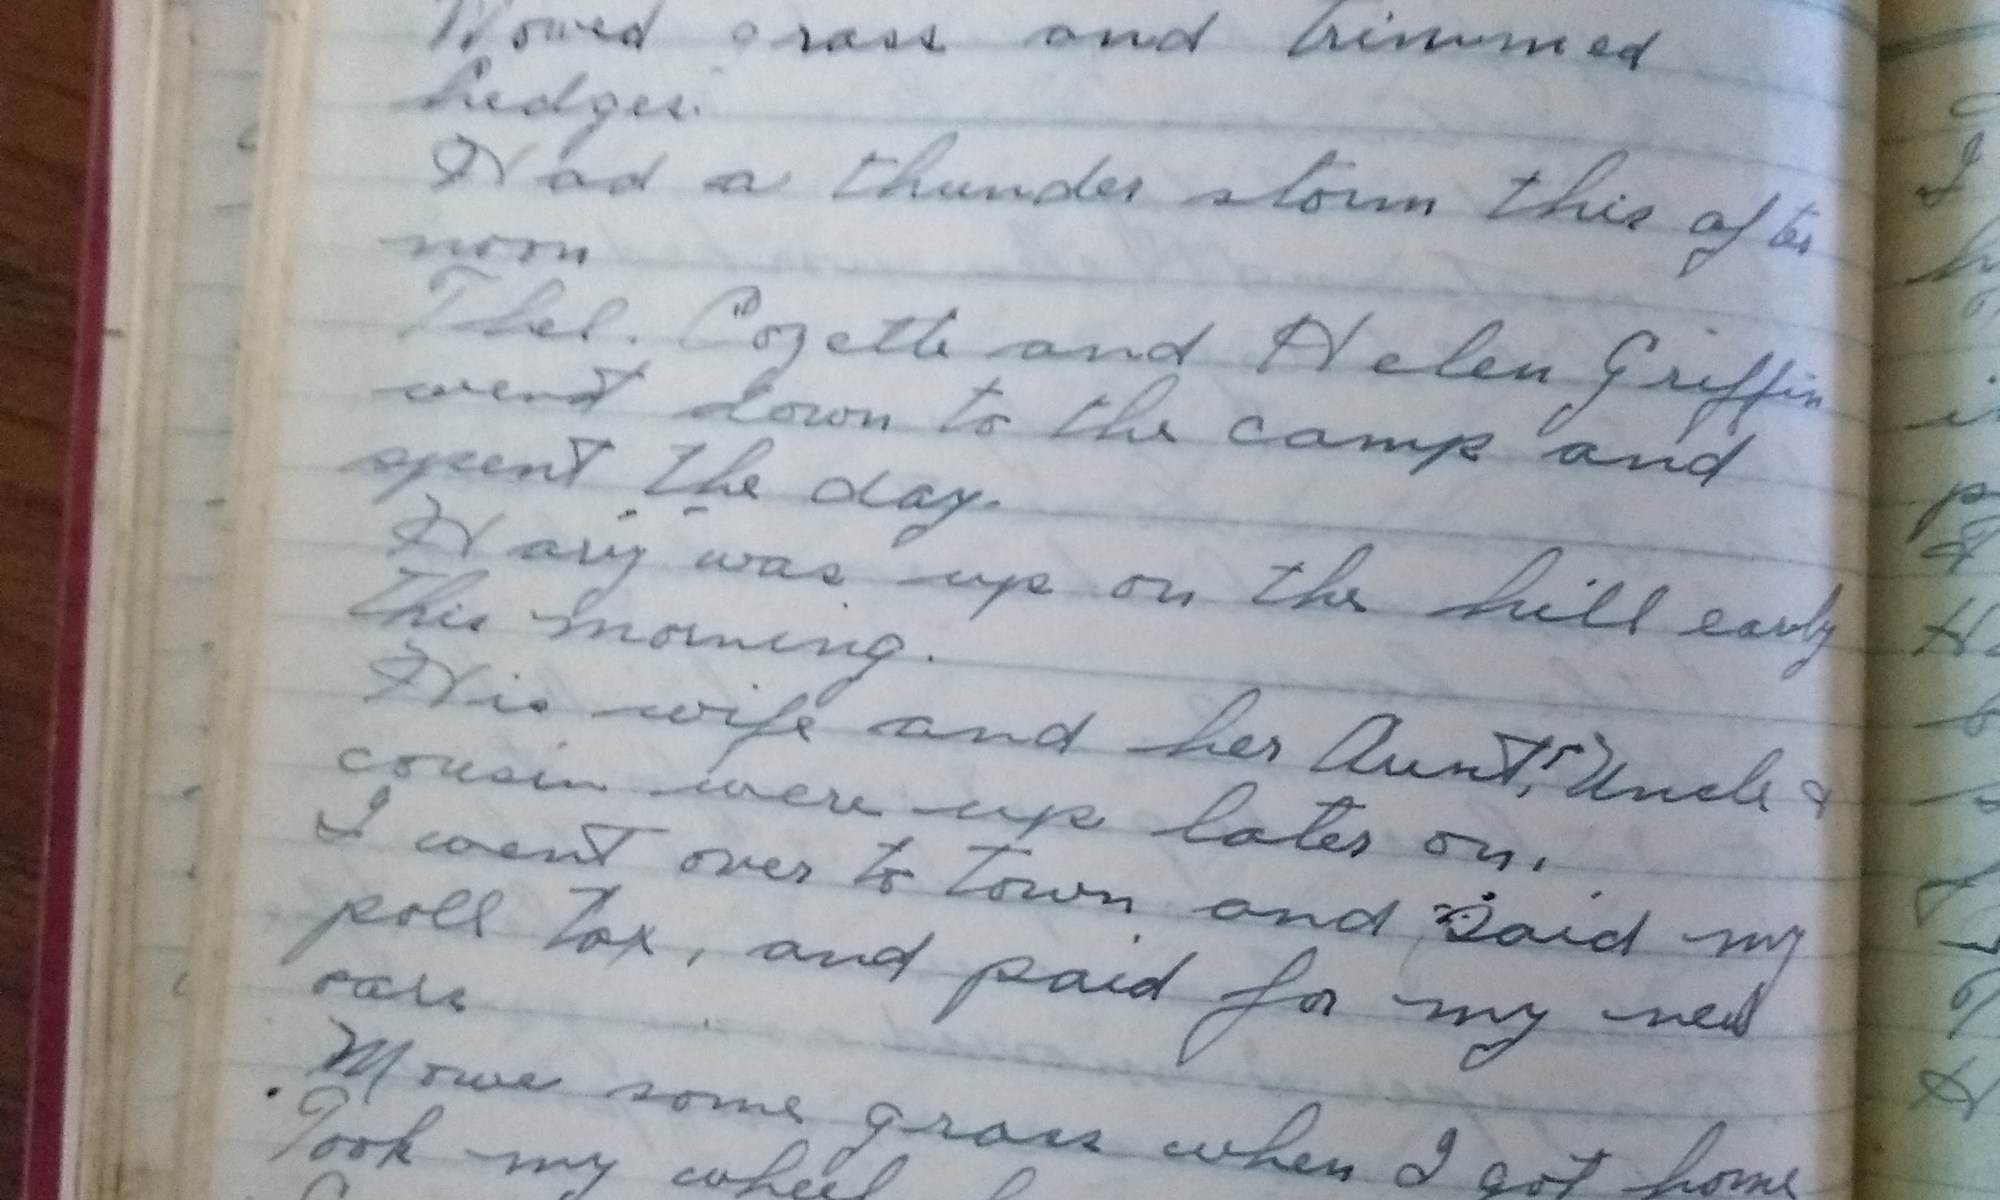 Mowed grass and trimmed
hedges.
Had a thunder storm this after
noon
Thel. Cozette and Helen Griffin
went down to the camp and
spent the day.
Harry was up on the hill early
this morning.
His wife and her Aunt, Uncle &
cousin were up later on.
I went over to town and paid my
poll tax, and paid for my new
oars
Mowe some grass when I got home
Took my wheel